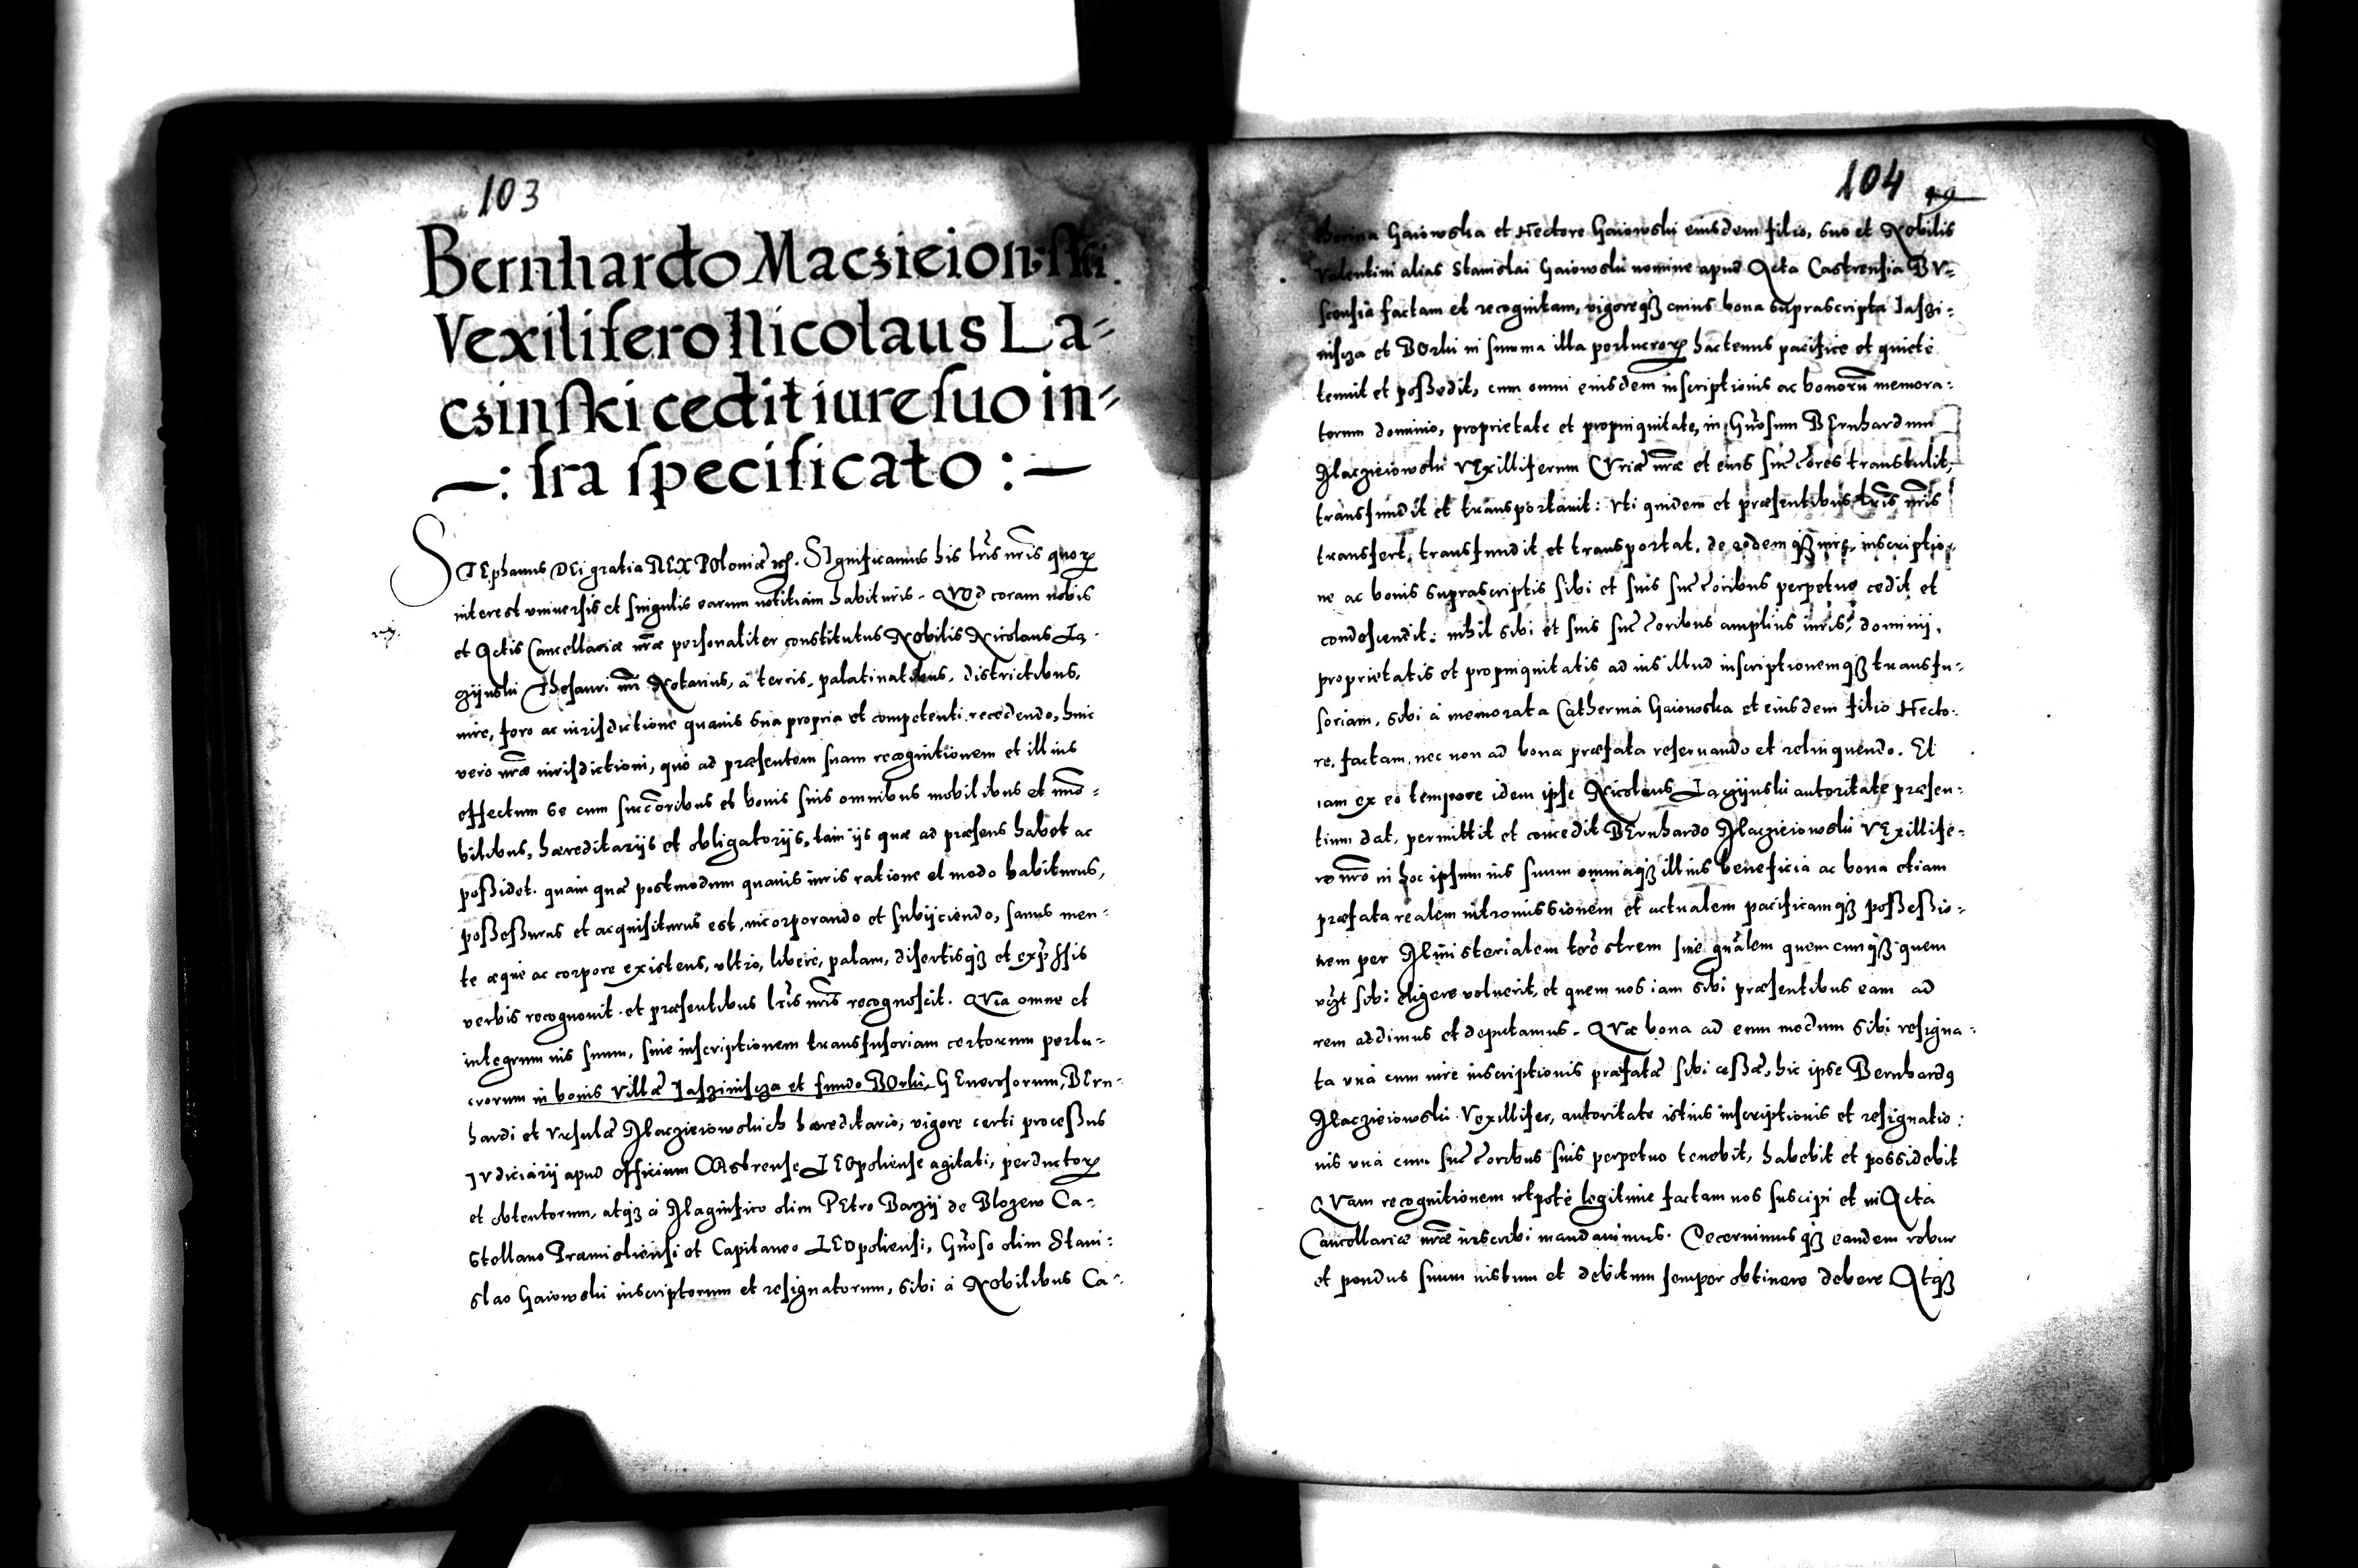 103
Bernhardo Macsieiowski
Vexilifero Nicolaus La=
csinski cedit iure suo in=
—: fra specificato :—
STEphanus DEi gratia REX POloniæ rcħ. SIgnificamus his lr̃is nr̃is quorꝝ
interest vniuersis et singulis earum notitiam habituris. QVOd coram nobis
et Actis Cancellariæ nr̃æ personaliter constitutus NObilis NIcolaus La
zijnski THesauri nr̃i NOtarius, a terris, palatinatibus, districtibus,
iure, foro ac iurisdictione quauis sua propria et competenti recedendo, huic
vero nr̃æ iurisdictioni, quo ad præsentem suam recognitionem et illius
effectum se cum succ̃oribus et bonis suis omnibus mobilibus et im̃o=
bilibus, hæreditarijs et obligatorijs, tam ijs quæ ad præsens habet ac
possidet. quam quæ postmodum quauis iuris ratione et modo habiturus,
possessurus et acquisiturus est, incorporando et subijciendo, sanus men=
te æque ac corpore existens, vltro, libere, palam, disertisqꝫ et exp̃ssis
verbis recognouit et præsentibus lr̃is nr̃is recognoscit. QVia omne et
integrum ius suum, siue inscriptionem transfusoriam certorum porlu=
crorum in bonis villæ Jaszinisza et fundo BOrki, GEnerosorum, BErn=
hardi et Vrsulæ Maczieiowskich hæreditario, vigore certi processus
IVdiciarij apud officium CAstrense LEOpoliense agitati, perductorꝝ
et obtentorum, atqꝫ à Magnifico olim PEtro Barzij de Blozew Ca=
stellano Præmisliensi et Capitaneo LEOpoliensi, Gñoso olim Stani=
slao Gaiowski inscriptorum et resignatorum, sibi à NObilibus Ca=
104
therina Gaiowska et Hectore Gaiowski eiusdem filio, suo et NObilis
Valentini alias Stanislai Gaiowski nomine apud Acta Castrensia BV=
scensia factam et recognitam, vigoreqꝫ cuius bona suprascripta Jaszi=
nisza et BOrki in summa illa porlucrorꝝ hactenus pacifice et quiete
tenuit et possedit, cum omni eiusdem inscriptionis ac bonorũ memora=
torum dominio, proprietate et propinquitate, in Gñosum BErnhardum
Maczieiowski VExilliferum CVriæ nr̃æ et eius succ̃ores transtulit,
transfundit et transportauit: vti quidem et præsentibus lr̃is nr̃is
transfert, transfundit et transportat, de eodem qꝫ iure, inscriptio=
ne ac bonis suprascriptis sibi et suis succ̃oribus perpetuo cedit et
condescendit: nihil sibi et suis succ̃oribus amplius iuris, dominij,
proprietatis et propinquitatis ad ius illud inscriptionemqꝫ transfu=
soriam, sibi à memorata Catherina Gaiowska et eiusdem filio Hecto=
re, factam, nec non ad bona præfata reseruando et relinquendo. Et
iam ex eo tempore idem ipse NIcolaus Lazijnski autoritate præsen=
tium dat, permittit et concedit BErnhardo Maczieiowski VExillife=
ro nr̃o in hoc ipsum ius suum omniaqꝫ illius beneficia ac bona etiam
præfata realem intromissionem et actualem pacificamqꝫ possessio=
nem per Ministerialem terr̃estrem siue gñalem quemcunqꝫ quem
sibi eligere voluerit, et quem nos iam sibi præsentibus eam ad
rem addimus et deputamus. QVæ bona ad eum modum sibi resigna=
ta vna cum iure inscriptionis præfatæ sibi cessæ, hic ipse Bernhardꝰ
Maczieiowski Vexillifer, autoritate istius inscriptionis et resignatio=
nis vna cum succ̃oribus suis perpetuo tenebit, habebit et possidebit
QVam recognitionem vtpote legitime factam nos suscipi et in Acta
Cancellariæ nr̃æ inscribi mandauimus. Decernimusqꝫ eandem robur
et pondus suum iustum et debitum semper obtinere debere Atqꝫ